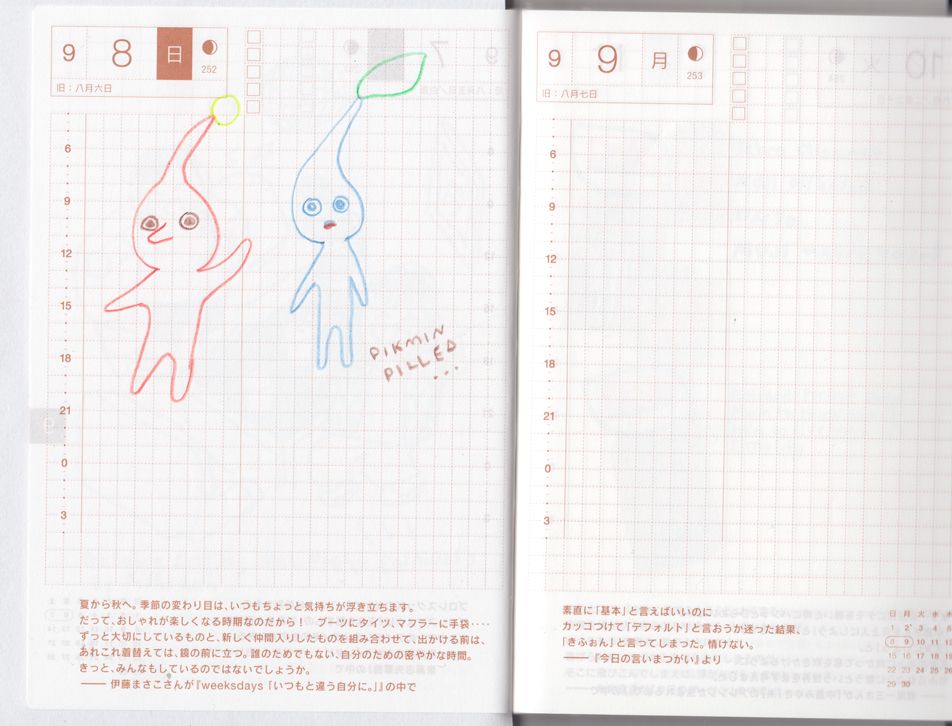 9 8 日 252
旧：八月六日
6
9
12
15
18
21
0
3
9
PIKMIN
PILLED
...
夏から秋へ。季節の変わり目は、いつもちょっと気持ちが浮き立ちます。
だって、おしゃれが楽しくなる時期なのだから！　ブーツにタイツ、マフラーに手袋････
ずっと大切にしているものと、新しく仲間入りしたものを組み合わせて、出かける前は、
あれこれ着替えては、鏡の前に立つ。誰のためでもない、自分のための密やかな時間。
きっと、みんなもしているのではないでしょうか。
―― 伊藤まさこさんが『weeksdays「いつもと違う自分に。」』の中で
9 9 月 253
旧：八月七日
6
9
12
15
18
21
0
3
素直に「基本」と言えばいいのに
カッコつけて「デフォルト」と言おうか迷った結果、
「きふぉん」と言ってしまった。情けない。
――『今日の言いまつがい』より
日 月 火 水 木
1 2 3 4 5
8 9 10 11 12
15 16 17 18 19
22 23 24 25 26
29 30